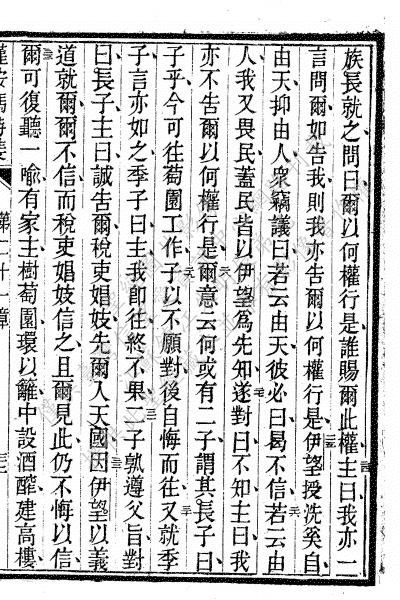 族長就之問曰爾以何權行是誰賜爾此權主曰我亦一
言問爾如告我則我亦告爾以何權行是伊望授洗奚自
由天抑由人衆竊議曰若云由天彼必曰曷不信若云由
人我又畏民蓋民皆以伊望爲先知遂對曰不知主曰我
亦不告爾以何權行是爾意云何或有二子謂其長子曰
子乎今可往葡園工作子以不願對後自悔而往又就季
子言亦如之季子曰主我卽往終不果二子孰遵父旨對
曰長子主曰誠告爾稅吏娼妓先爾入天國因伊望以義
道就爾爾不信而稅吏娼妓信之且爾見此仍不悔以信
爾可復聽一喻有家主樹葡園環以籬中設酒醡建高樓
第二十一章